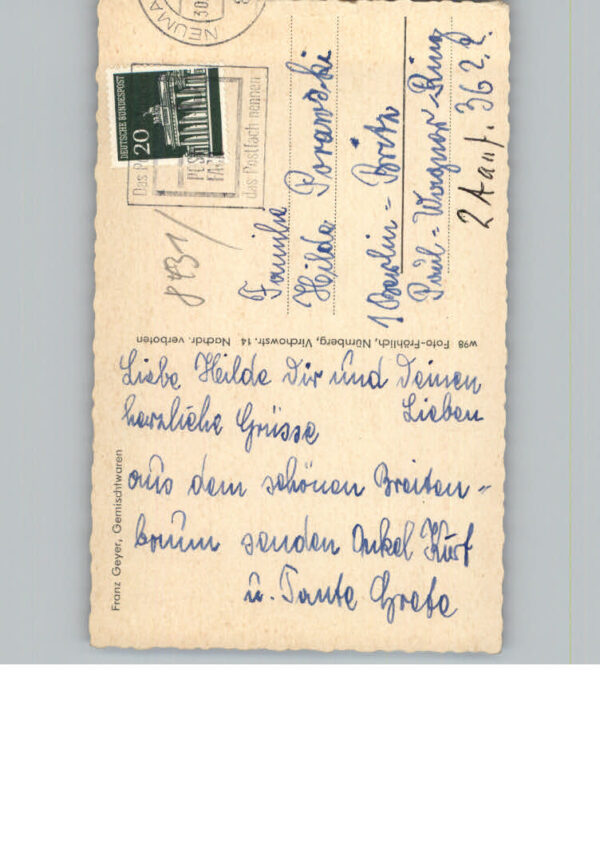 NEUMA
30.
DEUTSCHE BUNDESPOST
20
Das P
POST
das Postfach nennen
8431
Familie
Hilda Porawski
1 Berlin - Britz
Paul-Wagner-Ring
2 Aauf. 362.2.
w98 Foto-Fröhlich, Nürnberg, Virchowstr. 14 Nachdr. verboten
Franz Geyer, Gemischtwaren
Liebe Hilda Dir und Deinen
Lieben
herzliche Grüsse
aus dem schönen Breiten-
brunn senden Onkel Kurt
u. Tante Grete